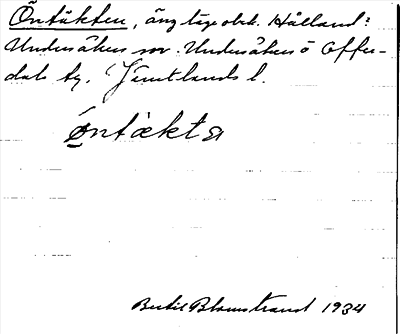 Öntäkten, äng tige obk. Hålland:
Undersåkers sn. Undersåkers o Offer-
dals tg. Jämtlands l.
öntækta
Bertil Blomstrand 1934